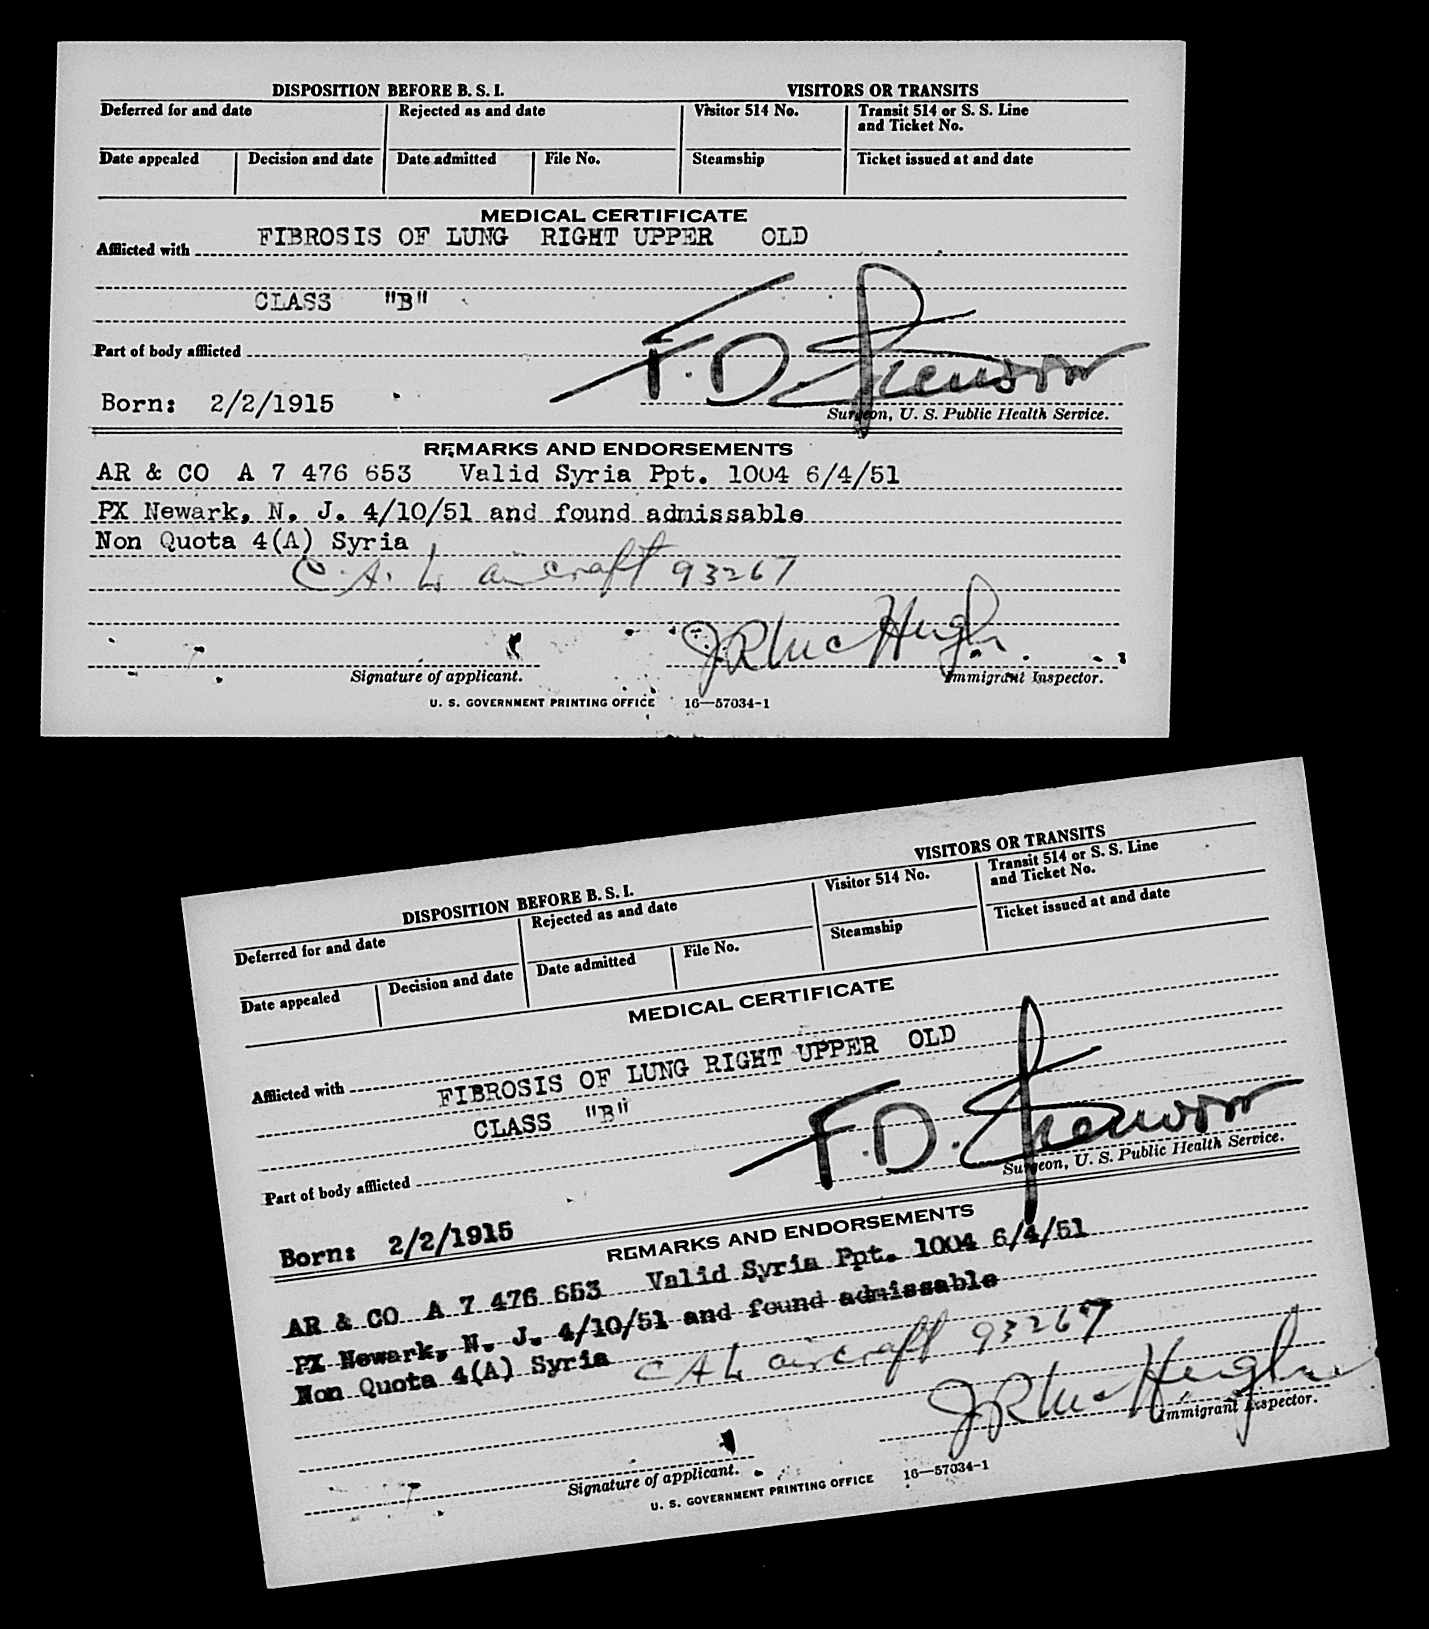 DISPOSITION BEFORE B. S. I. VISITORS OR TRANSITS
Deferred for and date Rejected as and date Visitor 514 No. Transit 514 or S. S. Line
and Ticket No.
Date appealed Decision and date Date admitted File No. Steamship Ticket issued at and date
MEDICAL CERTIFICATE
Afflicted with FIBROSIS OF LUNG RIGHT UPPER OLD
CLASS "B"
Part of body afflicted
F. D.
Born: 2/2/1915
Surgeon, U. S. Public Health Service.
REMARKS AND ENDORSEMENTS
AR & CO A 7 476 653 Valid Syria Ppt. 1004 6/4/51
PX Newark, N. J. 4/10/51 and found admissable
Non Quota 4(A) Syria
C. A. L aircraft 93267
Signature of applicant. Immigrant Inspector.
U. S. GOVERNMENT PRINTING OFFICE 16—57034-1
DISPOSITION BEFORE B. S. I. VISITORS OR TRANSITS
Deferred for and date Rejected as and date Visitor 514 No. Transit 514 or S. S. Line
and Ticket No.
Date appealed Decision and date Date admitted File No. Steamship Ticket issued at and date
MEDICAL CERTIFICATE
Afflicted with FIBROSIS OF LUNG RIGHT UPPER OLD
CLASS "B"
Part of body afflicted
F. D.
Surgeon, U. S. Public Health Service.
Born: 2/2/1915
REMARKS AND ENDORSEMENTS
AR & CO A 7 476 653 Valid Syria Ppt. 1004 6/4/51
PX Newark, N. J. 4/10/51 and found admissable
Non Quota 4(A) Syria
C A L aircraft 93267
Signature of applicant. Immigrant Inspector.
U. S. GOVERNMENT PRINTING OFFICE 16—57034-1